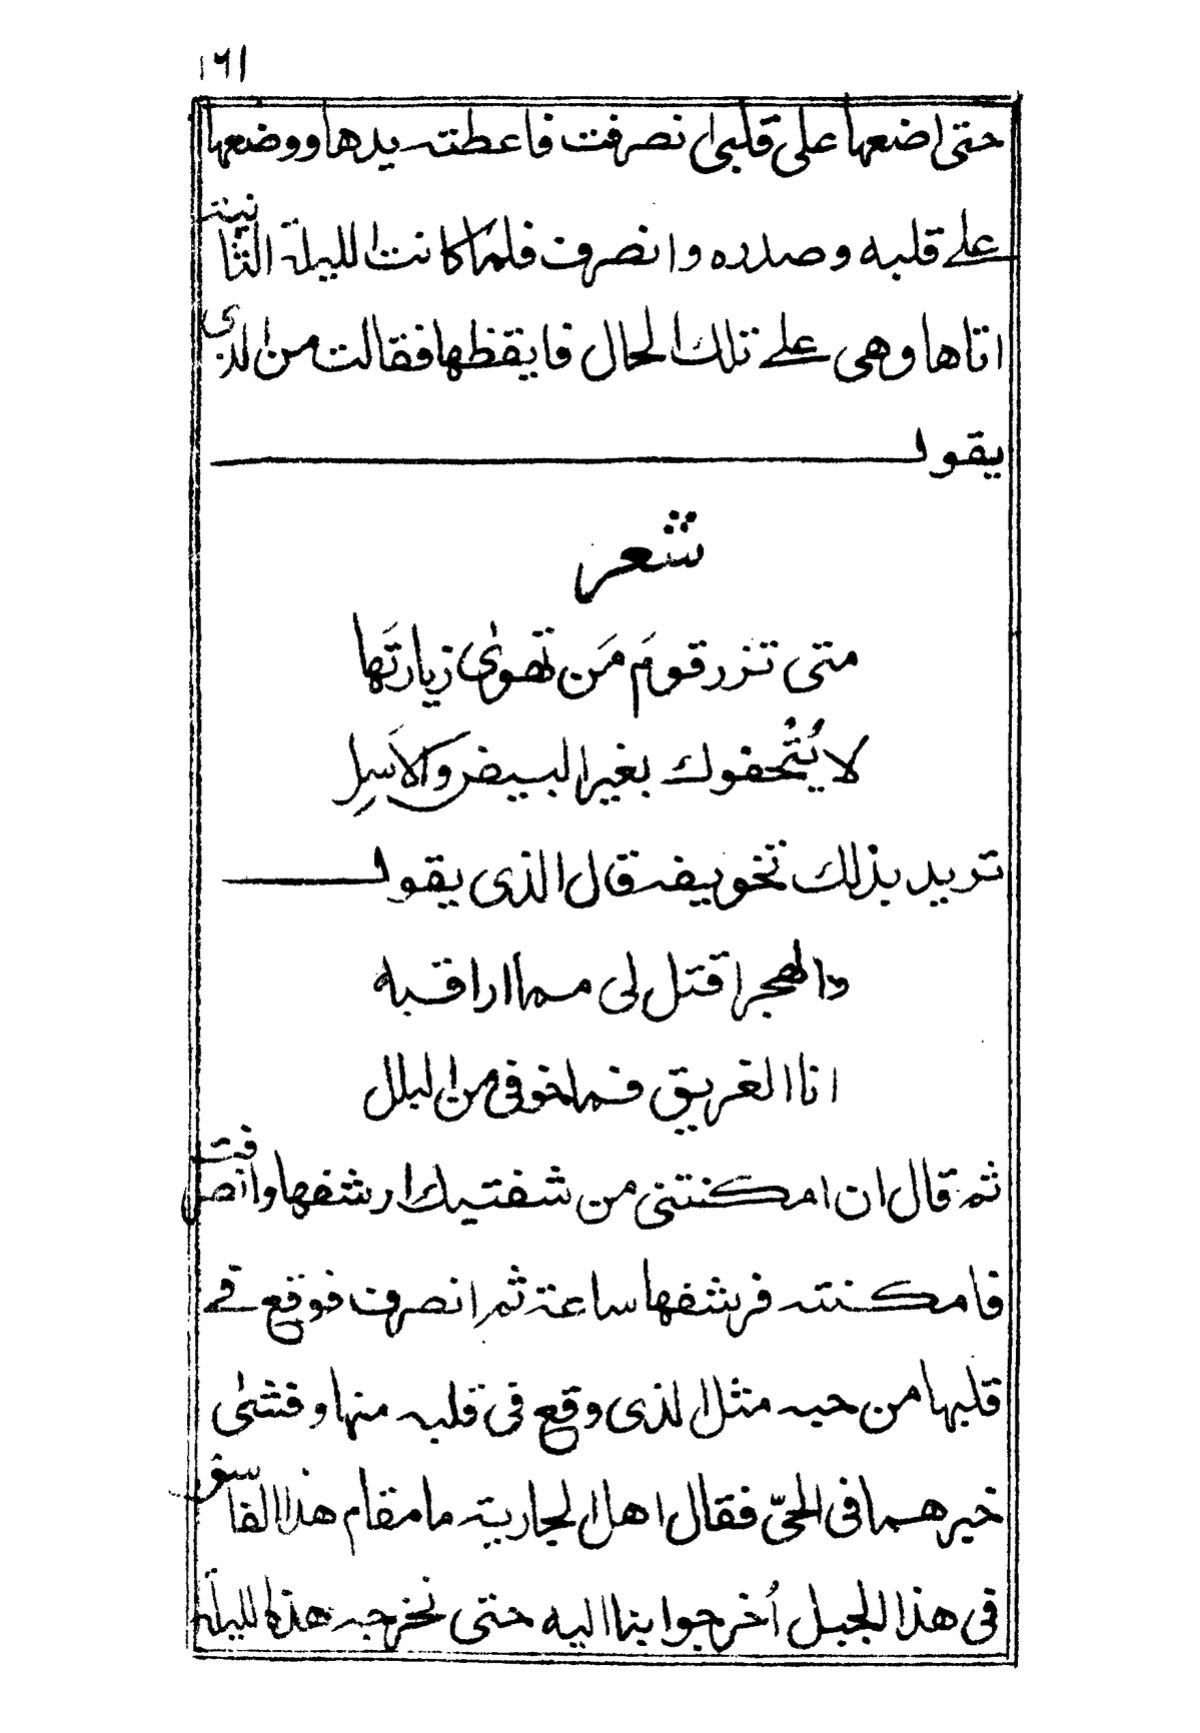 ١٦١
حتى اضعها على قلبى انصرفت فاعطته يدها ووضعها
على قلبه وصدره وانصرف فلما كانت الليلة الثانية
اتاها وهى على تلك الحال فايقظها فقالت من الذى
يقول
شعر
متى تزر قومَ مَن تهوىٰ زيارتَها
لا يُتْحفوك بغير البيض والاَسِل
تريد بذلك تخويفه قال الذى يقول
والهجر اقتل لى مما اراقبه
انا الغريق فما خوفى من البلل
ثم قال ان امكنتنى من شفتيك ارشفها وانصرفت
فامكنته فرشفها ساعة ثم انصرف فوقع فى
قلبها من حبه مثل الذى وقع فى قلبه منها وفشىٰ
خبرهما فى الحىّ فقال اهل الجارية ما مقام هذا الفاسق
فى هذا الجبل اُخرجوا بنا اليه حتى نخرجه هذه الليلة